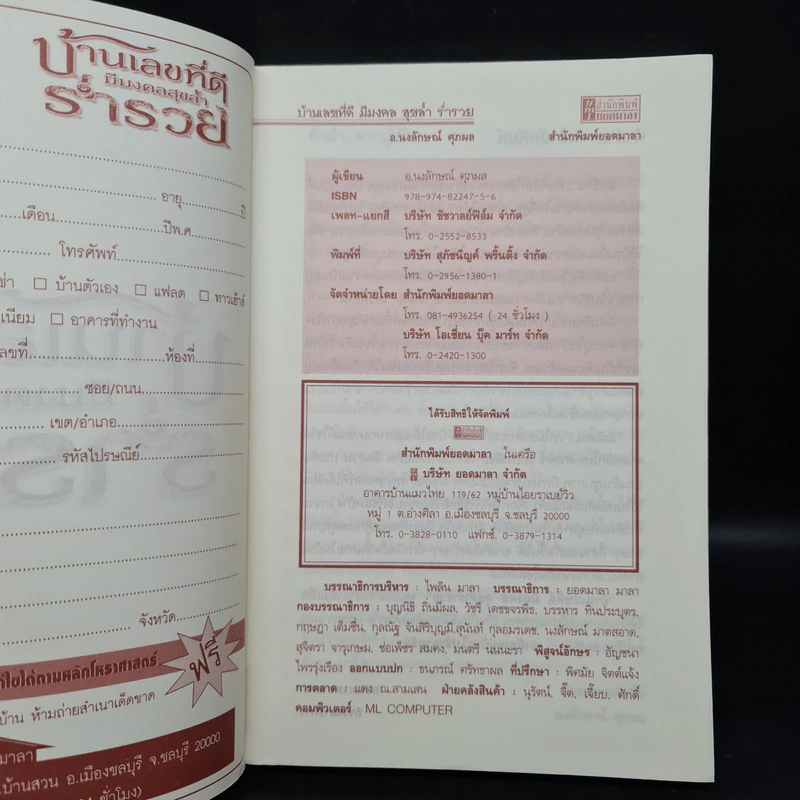 บ้านเลขที่ดี
มีมงคลสุขล้ำ
ร่ำรวย
อายุ ปี
เดือน ปีพ.ศ.
โทรศัพท์
เช่า □ บ้านตัวเอง □ แฟลต □ ทาวเฮ้าส์
เนียม □ อาคารที่ทำงาน
ลขที่ ห้องที่
ซอย/ถนน
เขต/อำเภอ
รหัสไปรษณีย์
จังหวัด
ฟรี
ไขได้ตามหลักโหราศาสตร์
บ้าน ห้ามถ่ายสำเนาเด็ดขาด
มาลา
บ้านสวน อ.เมืองชลบุรี จ.ชลบุรี 20000
ชั่วโมง)
บ้านเลขที่ดี มีมงคล สุขล้ำ ร่ำรวย
สำนักพิมพ์
ยอดมาลา
อ.นงลักษณ์ ศุภผล สำนักพิมพ์ยอดมาลา
ผู้เขียน อ.นงลักษณ์ ศุภผล
ISBN 978-974-82247-5-6
เพลท-แยกสี บริษัท ชัชวาลย์ฟิล์ม จำกัด
โทร. 0-2552-8533
พิมพ์ที่ บริษัท สุภัชนิญค์ พริ้นติ้ง จำกัด
โทร. 0-2956-1380-1
จัดจำหน่ายโดย สำนักพิมพ์ยอดมาลา
โทร. 081-4936254 ( 24 ชั่วโมง )
บริษัท โอเชี่ยน บุ๊ค มาร์ท จำกัด
โทร. 0-2420-1300
ได้รับสิทธิให้จัดพิมพ์
สำนักพิมพ์ยอดมาลา ในเครือ
บริษัท ยอดมาลา จำกัด
อาคารบ้านแมวไทย 119/62 หมู่บ้านไอยราเบย์วิว
หมู่ 1 ต.อ่างศิลา อ.เมืองชลบุรี จ.ชลบุรี 20000
โทร. 0-3828-0110 แฟกซ์. 0-3879-1314
บรรณาธิการบริหาร : ไพลิน มาลา บรรณาธิการ : ยอดมาลา มาลา
กองบรรณาธิการ : บุญนิธิ ถิ่นมีผล, วัชรี เดชขจรพิธ, บรรหาร ทินประบุตร,
กฤษฎา เต็มชื่น, กุลณัฐ จันสิริบุญมี,สุนันท์ กุลอมรเดช, นงลักษณ์ มาตสอาด,
สุจิตรา จารุเกษม, ช่อเพ็ชร สมคง, มนตรี นนนะรา พิสูจน์อักษร : อัญชนา
ไพรรุ่งเรือง ออกแบบปก : ธนภรณ์ ศรัทธาผล ที่ปรึกษา : พิศมัย จิตต์แจ้ง
การตลาด : แดง ณ.สามเสน ฝ่ายคลังสินค้า : นุรัตน์, จี๊ด, เจี๊ยบ, ศักดิ์
คอมพิวเตอร์ : ML COMPUTER